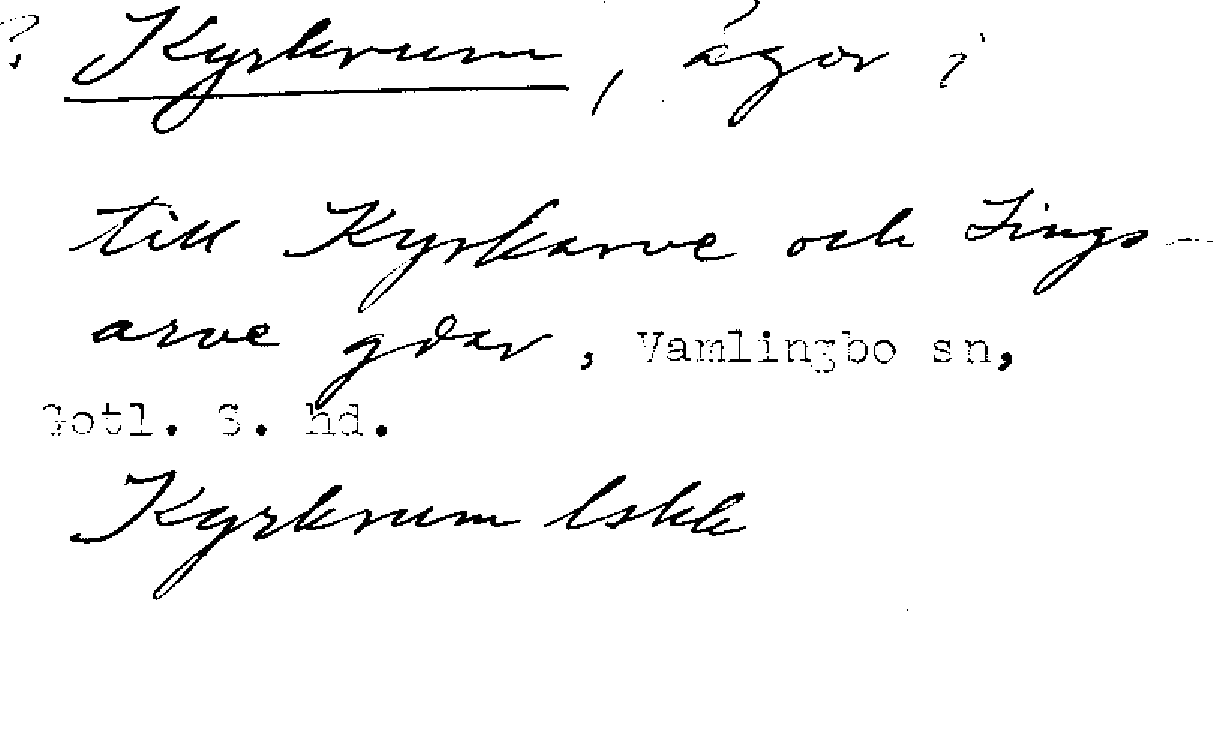 ? Kyrkrum, ägor i
till Kyrkarve och Lings-
arve gdar, Vamlingbo sn,
Gotl. S. hd.
Kyrkrum lskk